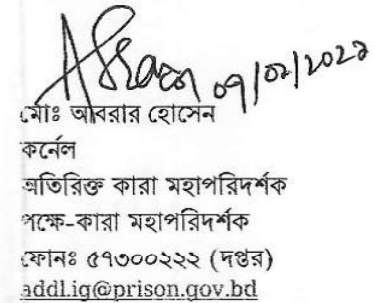 07/02/2022
মোঃ আবরার হোসেন
কর্নেল
অতিরিক্ত কারা মহাপরিদর্শক
পক্ষে-কারা মহাপরিদর্শক
ফোনঃ ৫৭৩০০২২২ (দপ্তর)
addl.ig@prison.gov.bd